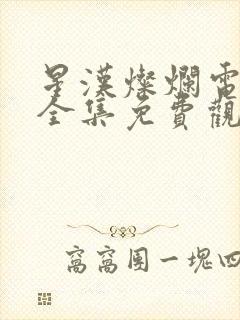 星漢燦爛電
全集免費觀
窩窩團一塊四